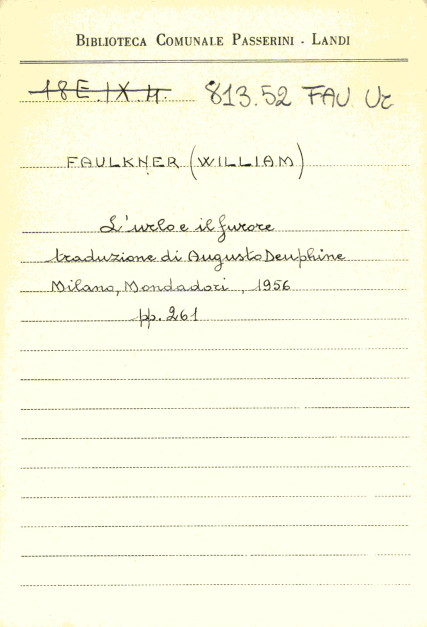 BIBLIOTECA COMUNALE PASSERINI - LANDI
18E.IX.4. 813.52 FAU Ur
FAULKNER (WILLIAM)
L'urlo e il furore
traduzione di Augusto Dauphine
Milano, Mondadori, 1956
pp. 261